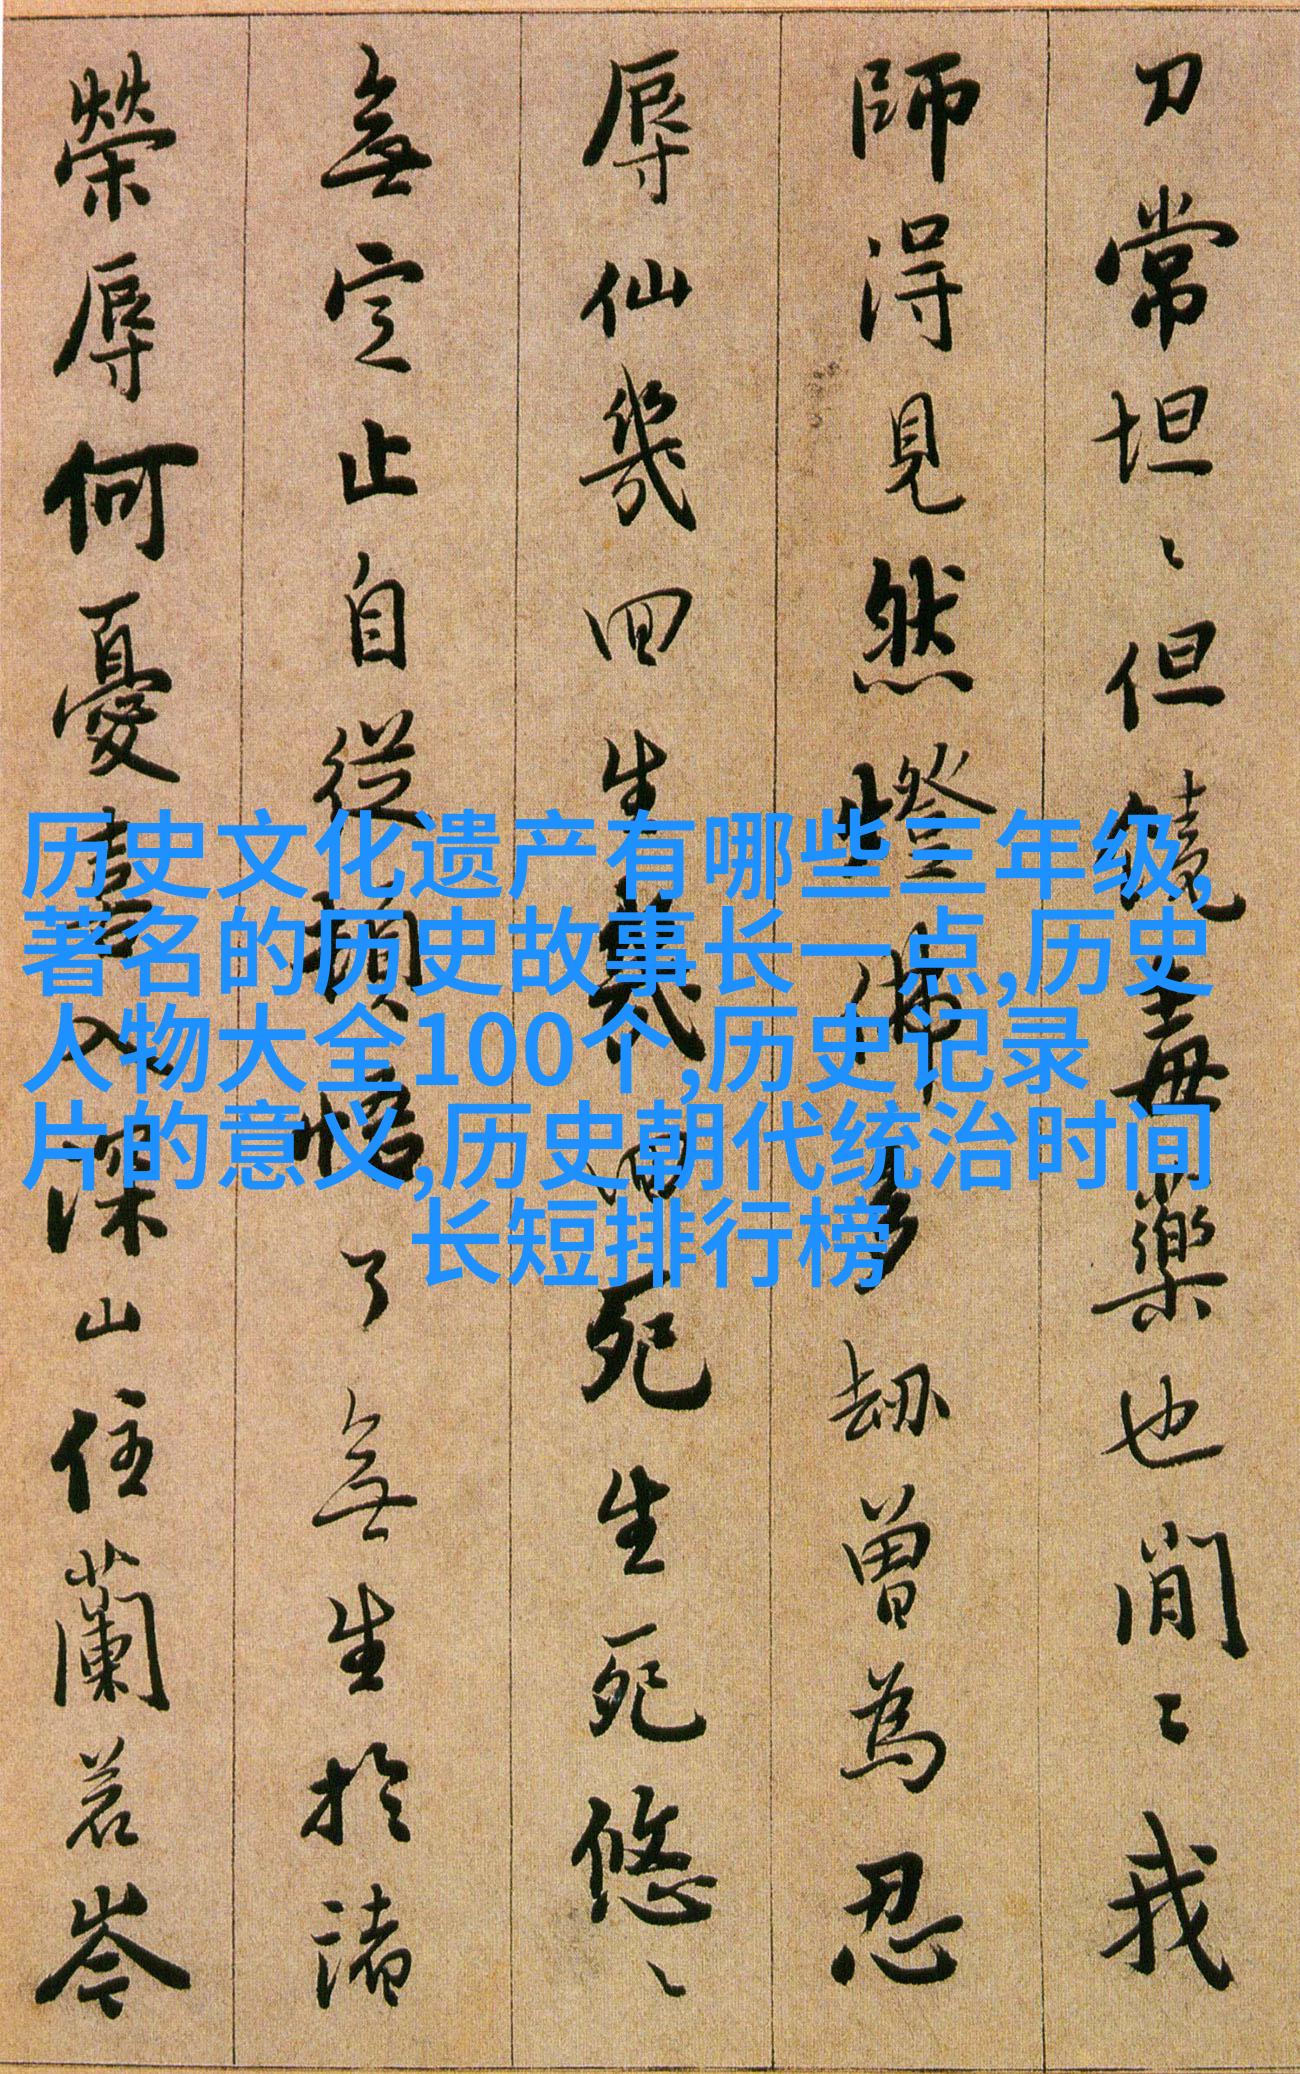 刀常坦〻但饒毒藥也閒〻我
師得見然燈佛多劫曾為忍
辱仙幾回生幾回死生死悠〻
無定止自從頓悟了無生於諸
榮辱何憂喜入深山住蘭若岑
历史文化遗产有哪些三年级,
著名的历史故事长一点,历史
人物大全100个,历史记录
片的意义,历史朝代统治时间
长短排行榜